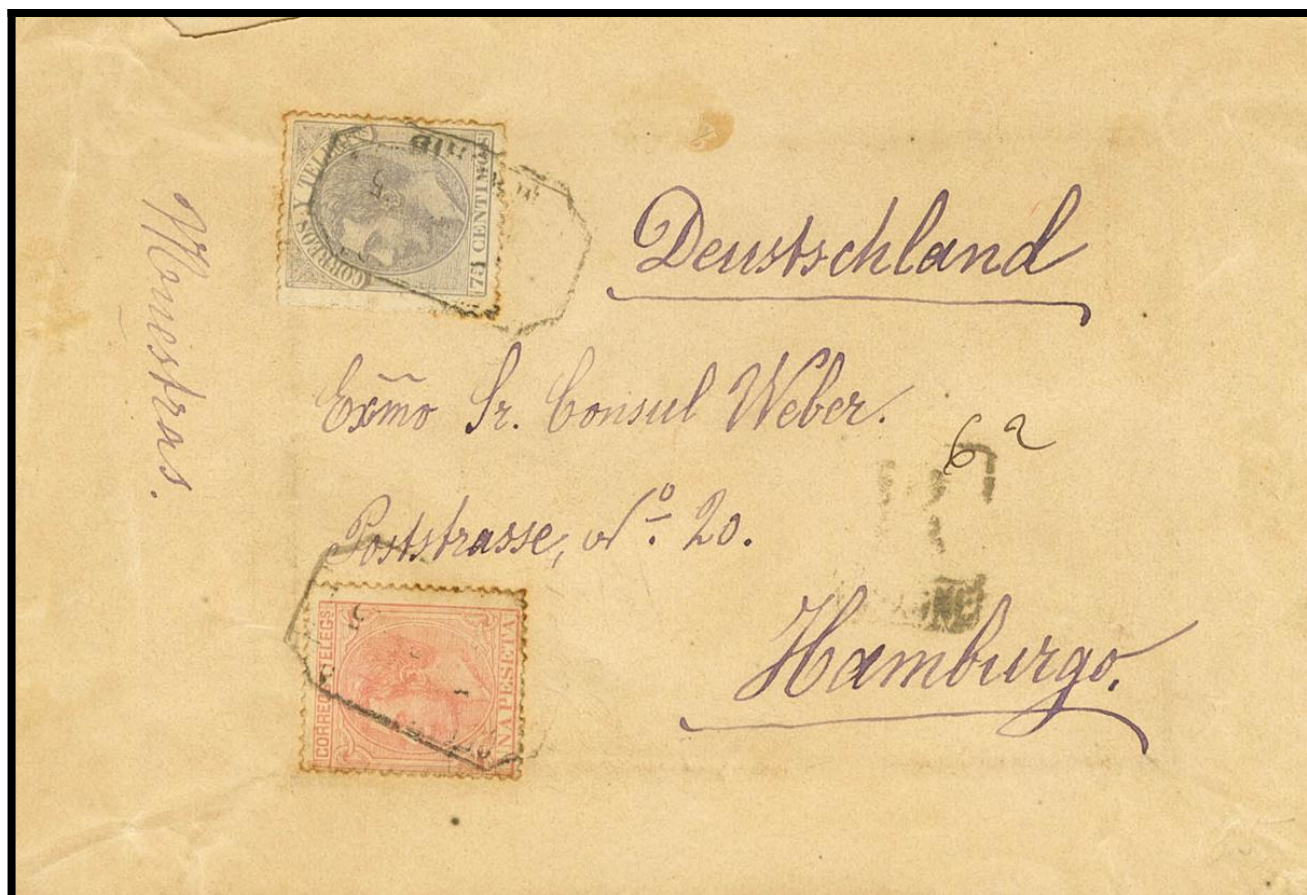 Muestras.
CORREOS Y TELEGS
75 CENTIMOS
Deustschland
Exmo Sr. Consul Weber.
6
Poststrasse, Nº 20.
CORREOS Y TELEGS
UNA PESETA
Hamburgo.